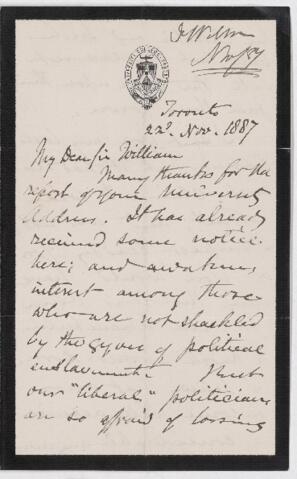 Toronto
22d. Nov. 1887
My Dear Sir William
Many thanks for the
report of your University
Address. It has already
received some notice
here; and awakens
interest among those
who are not shackled
by the gyves of political
enslavement. But
our "liberal" politicians
are so afraid of loosing